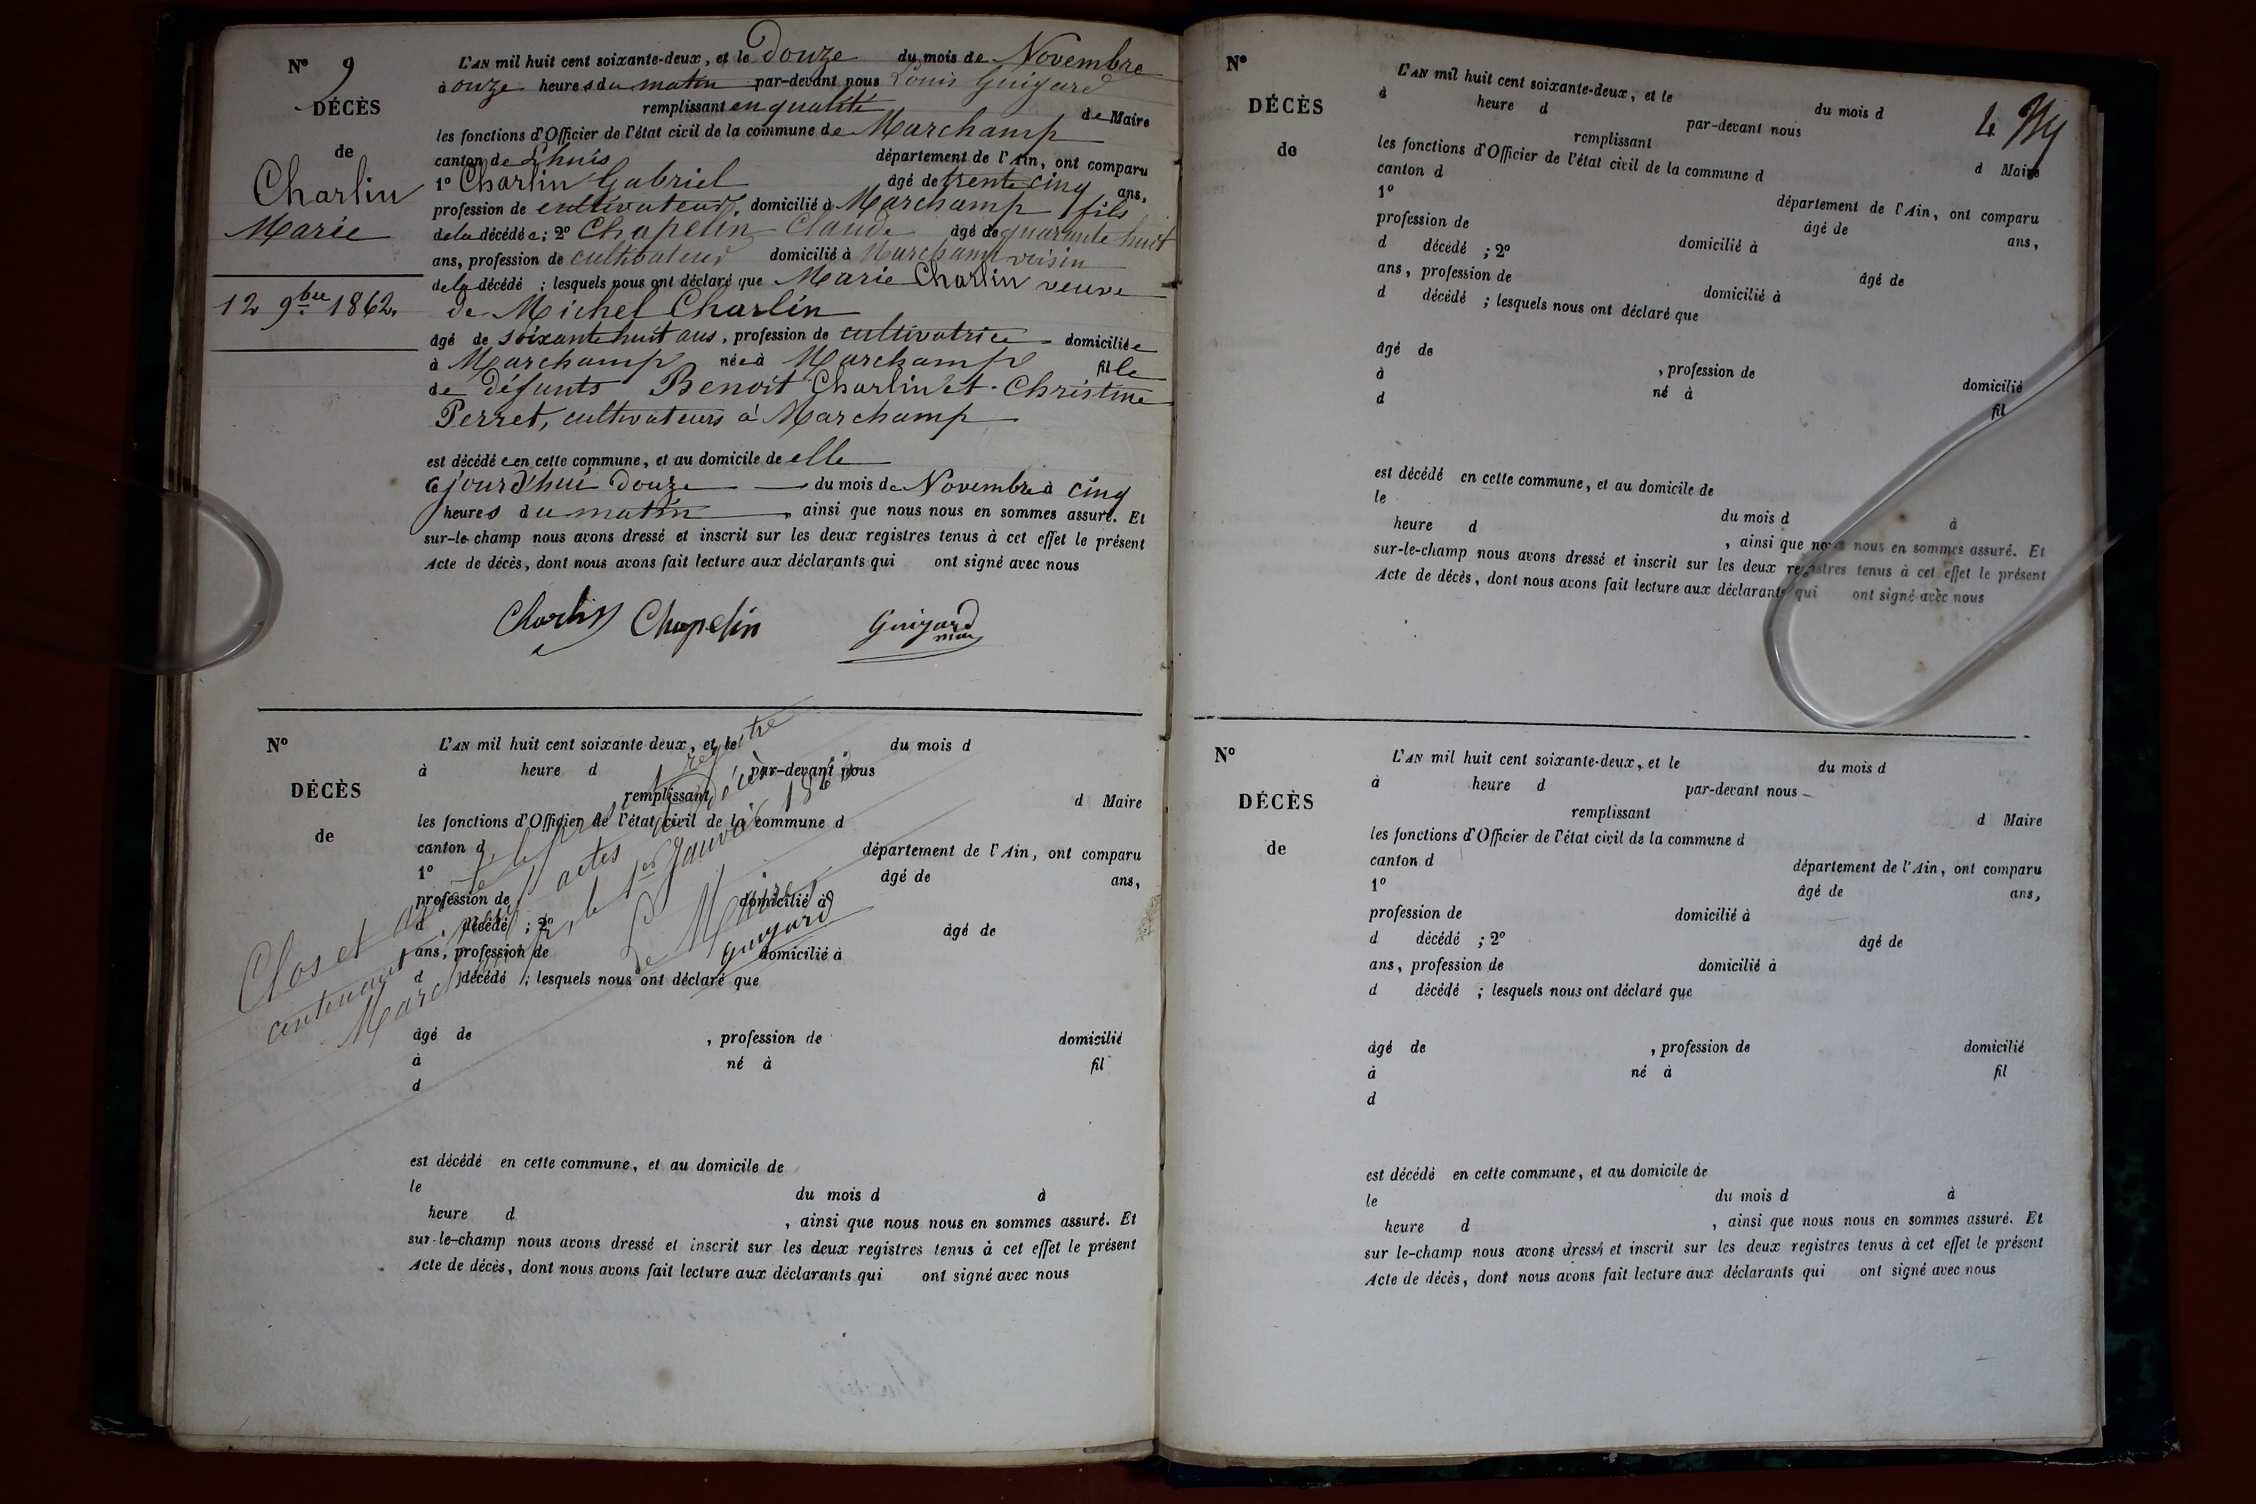 N° 9
DÉCÈS
de
Charlin
Marie
12 9bre 1862.
L'AN mil huit cent soixante-deux, et le Douze du mois de Novembre
à onze heures du matin par-devant nous Louis Guigard
remplissant en qualité de Maire
les fonctions d'Officier de l'état civil de la commune de Marchamp
canton de Lhuis département de l'Ain, ont comparu
1° Charlin Gabriel âgé de trente cinq ans,
profession de cultivateur, domicilié à Marchamp fils
de la décédée; 2° Chapelin Claude âgé de quarante huit
ans, profession de cultivateur domicilié à Marchamp voisin
de la décédé ; lesquels nous ont déclaré que Marie Charlin veuve
de Michel Charlin
âgé de soixante huit ans, profession de cultivatrice domiciliée
à Marchamp née à Marchamp fille
de défunts Benoit Charlin et Christine
Perret, cultivateurs à Marchamp
est décédée en cette commune, et au domicile de elle
cejourd'hui Douze du mois de Novembre à cinq
heures du matin, ainsi que nous nous en sommes assuré. Et
sur-le-champ nous avons dressé et inscrit sur les deux registres tenus à cet effet le présent
Acte de décès, dont nous avons fait lecture aux déclarants qui ont signé avec nous
Charlin Chapelin Guigard
maire
N°
DÉCÈS
de
L'AN mil huit cent soixante deux, et le du mois d
à heure d par-devant nous
remplissant d Maire
les fonctions d'Officier de l'état civil de la commune d
canton d département de l'Ain, ont comparu
1° âgé de ans,
profession de domicilié à
d décédé ; 2° âgé de
ans, profession de domicilié à
d décédé ; lesquels nous ont déclaré que
âgé de , profession de domicilié
à né à fil
d
est décédé en cette commune, et au domicile de
le du mois d à
heure d , ainsi que nous nous en sommes assuré. Et
sur-le-champ nous avons dressé et inscrit sur les deux registres tenus à cet effet le présent
Acte de décès, dont nous avons fait lecture aux déclarants qui ont signé avec nous
Clos et le registre
contenant actes de décès
Marchamp, le 1er Janvier 1863
Le Maire
Guigard
N°
DÉCÈS
de
L'AN mil huit cent soixante-deux, et le du mois d
à heure d par-devant nous
remplissant d Maire
les fonctions d'Officier de l'état civil de la commune d
canton d département de l'Ain, ont comparu
1° âgé de ans,
profession de domicilié à
d décédé ; 2° âgé de
ans, profession de domicilié à
d décédé ; lesquels nous ont déclaré que
âgé de , profession de domicilié
à né à fil
d
est décédé en cette commune, et au domicile de
le du mois d à
heure d , ainsi que nous nous en sommes assuré. Et
sur-le-champ nous avons dressé et inscrit sur les deux registres tenus à cet effet le présent
Acte de décès, dont nous avons fait lecture aux déclarants qui ont signé avec nous
N°
DÉCÈS
de
L'AN mil huit cent soixante-deux, et le du mois d
à heure d par-devant nous
remplissant d Maire
les fonctions d'Officier de l'état civil de la commune d
canton d département de l'Ain, ont comparu
1° âgé de ans,
profession de domicilié à
d décédé ; 2° âgé de
ans, profession de domicilié à
d décédé ; lesquels nous ont déclaré que
âgé de , profession de domicilié
à né à fil
d
est décédé en cette commune, et au domicile de
le du mois d à
heure d , ainsi que nous nous en sommes assuré. Et
sur le-champ nous avons dressé et inscrit sur les deux registres tenus à cet effet le présent
Acte de décès, dont nous avons fait lecture aux déclarants qui ont signé avec nous